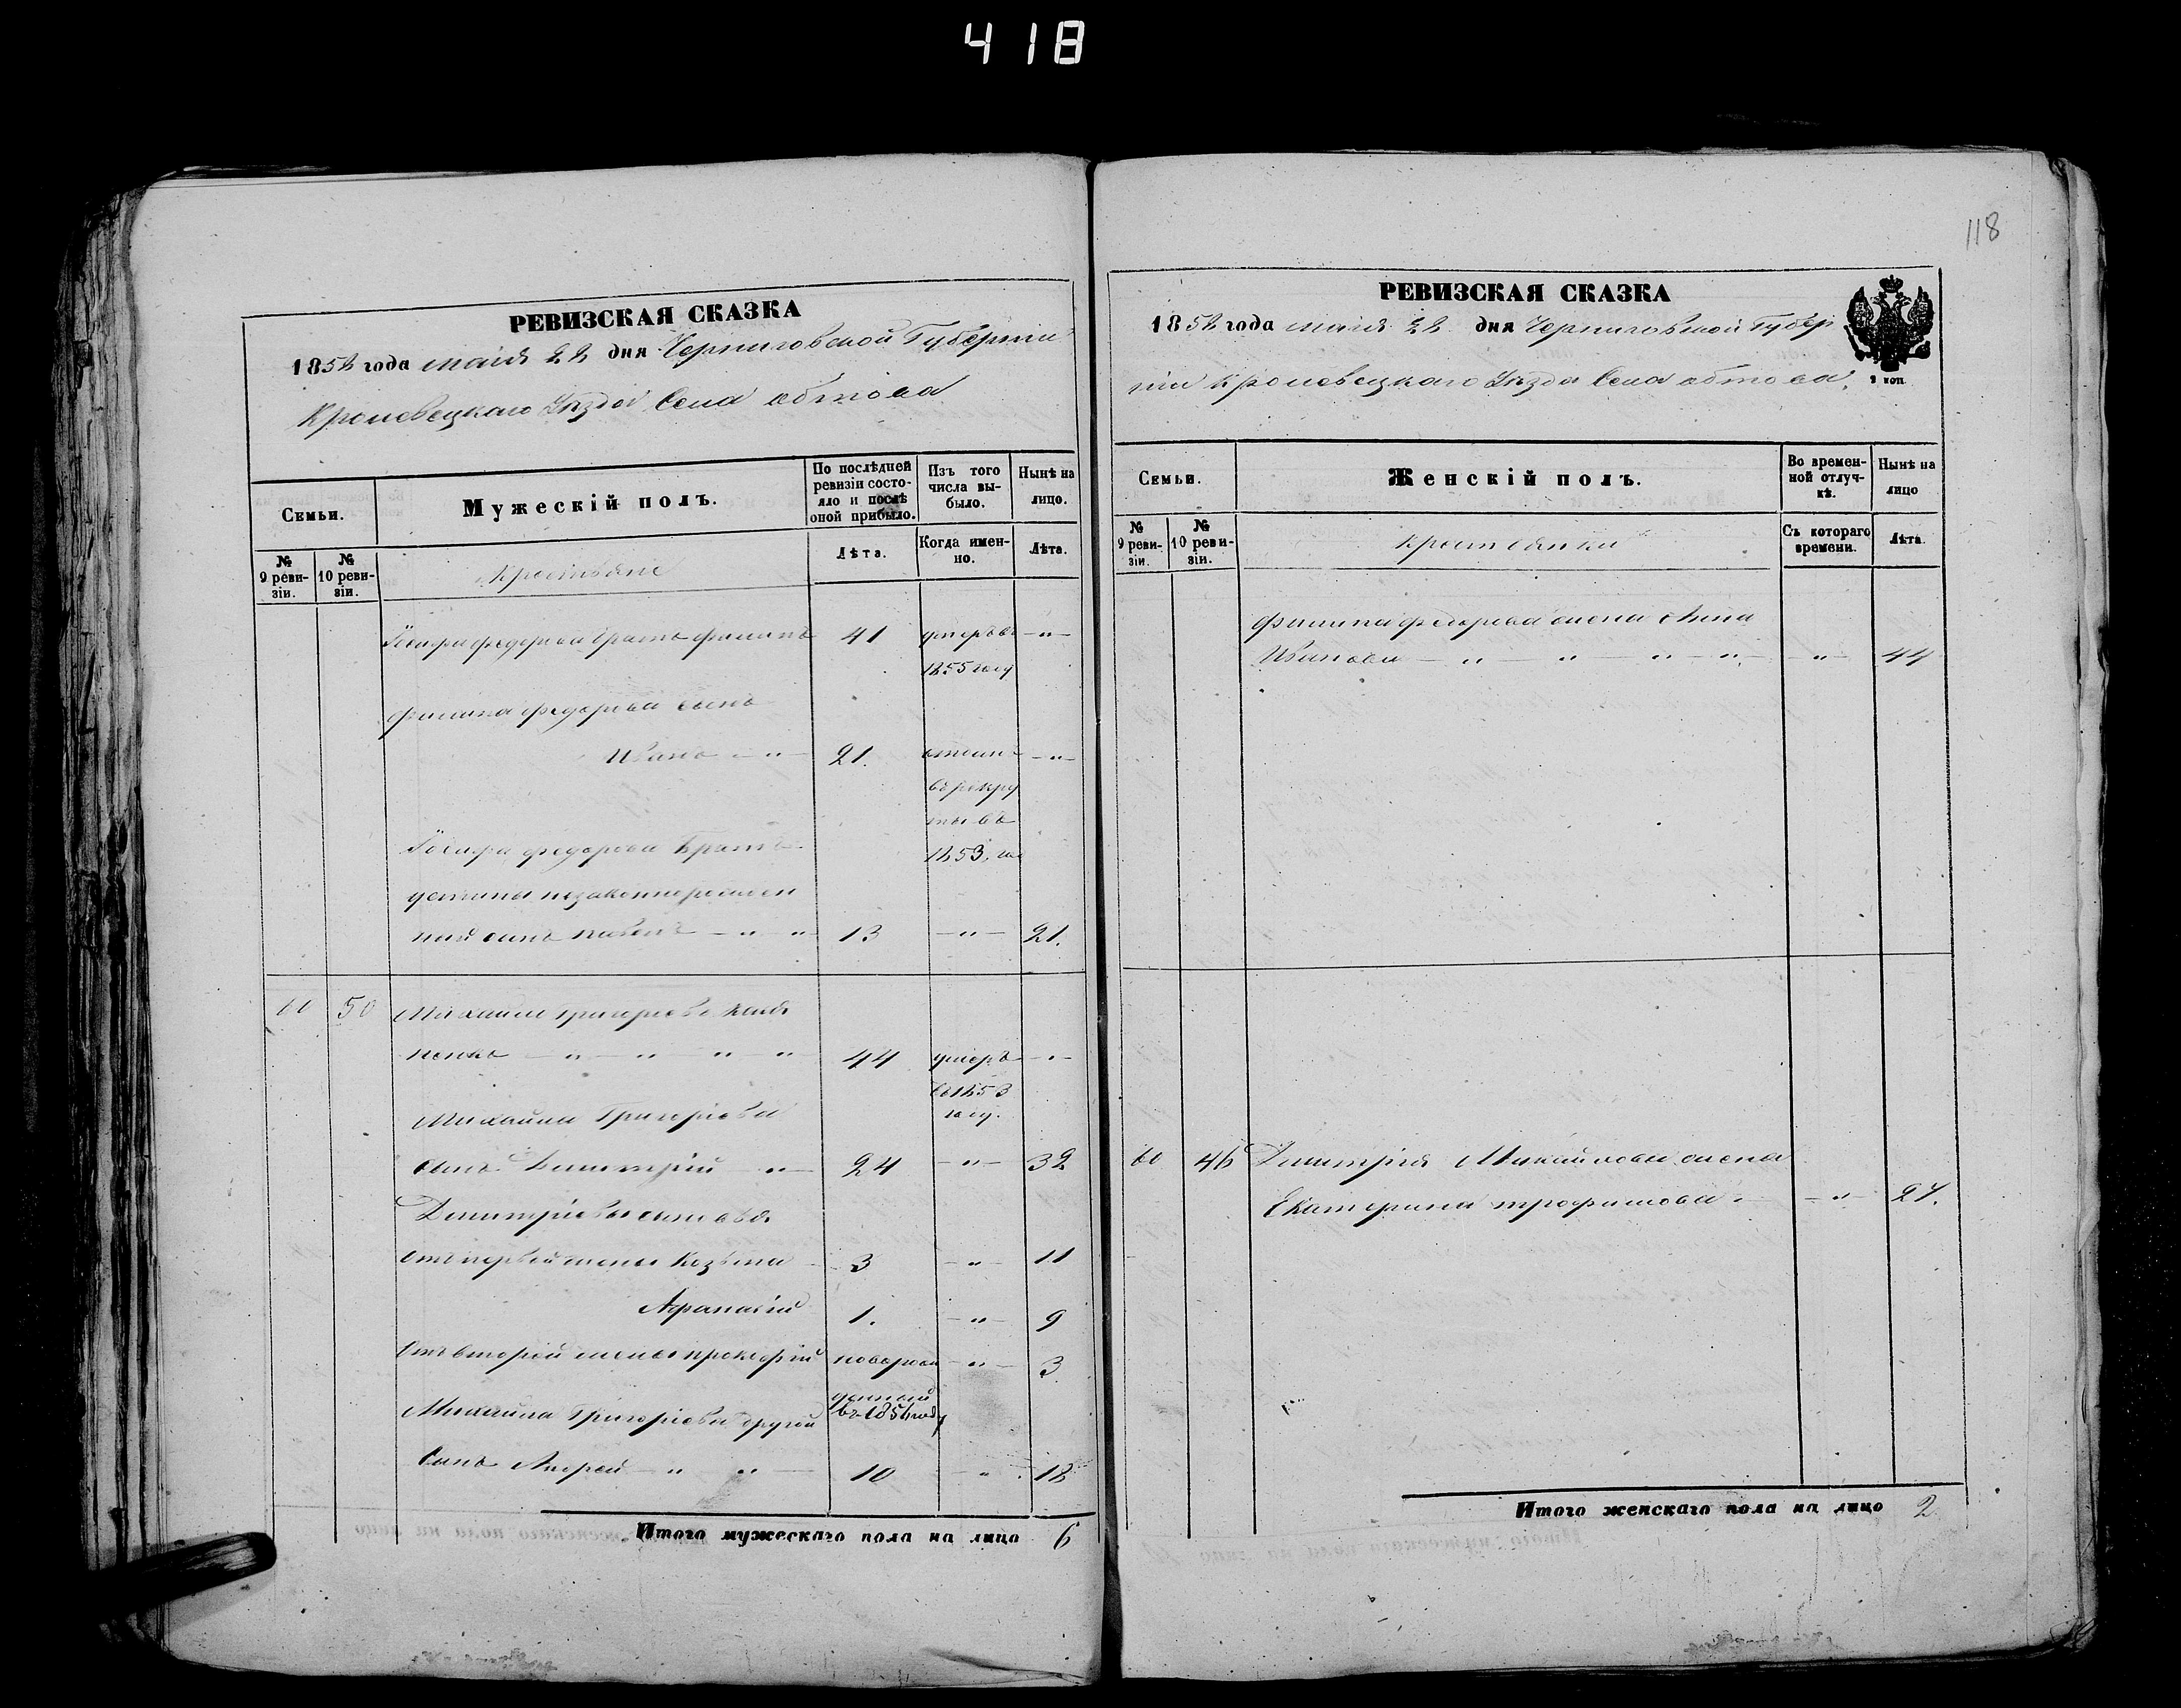 418
118
РЕВИЗСКАЯ СКАЗКА
1858 года мая 22 дня Черниговской Губерніи
Кролевецкаго Уѣзда Села обтова
Семьи.
Мужескій полъ.
По послѣдней ревизіи состояло и послѣ оной прибыло.
Изъ того числа выбыло.
Нынѣ на лицо.
№ 9 ревизіи.
№ 10 ревизіи.
Крестьяне
Лѣта.
Когда именно.
Лѣта.
Іосифа федорова братъ филипъ 41 умеръ въ —„—
1855 году
филипа федорова сынъ
Иванъ — „ — 21. —„—
въ рекру
ты въ
Іосифа федорова брата 1853. го
незаконнорожден
ный сынъ — „ „ 13 —„— 21.
50 Михаилъ Григорьевъ
— „ — „ „ — „ 44 умеръ —„—
въ 1853
году.
Михайла Григорьева
сынъ Димитрій —„— 24 —„— 32
Димитріевы сыновья
отъ первой жены Козьма 3 —„— 11
Афанасій 1. —„— 9
отъ второй жены прокофій новорож —„— 3
денный
Михайла Григорьева другой въ 1854 году
Сынъ Андрей — „ „ — 10 — „ . 18
Итого мужескаго пола на лицо 6
РЕВИЗСКАЯ СКАЗКА
1858 года мая 22 дня Черниговской Губер
ніи Кролевецкаго Уѣзда Села обтова.
2 коп.
Семьи.
Женскій полъ.
Во временной отлучкѣ.
Нынѣ на лицо
№ 9 ревизіи.
№ 10 ревизіи.
Крестьянки
Съ котораго времени.
Лѣта.
филипа федорова жена Анна
Иванова — „ — „ — „ — „. —„— 44
60 46 Димитрія Михайлова жена
Екатерина трофимова „ — —„— 27.
Итого женскаго пола на лицо 2